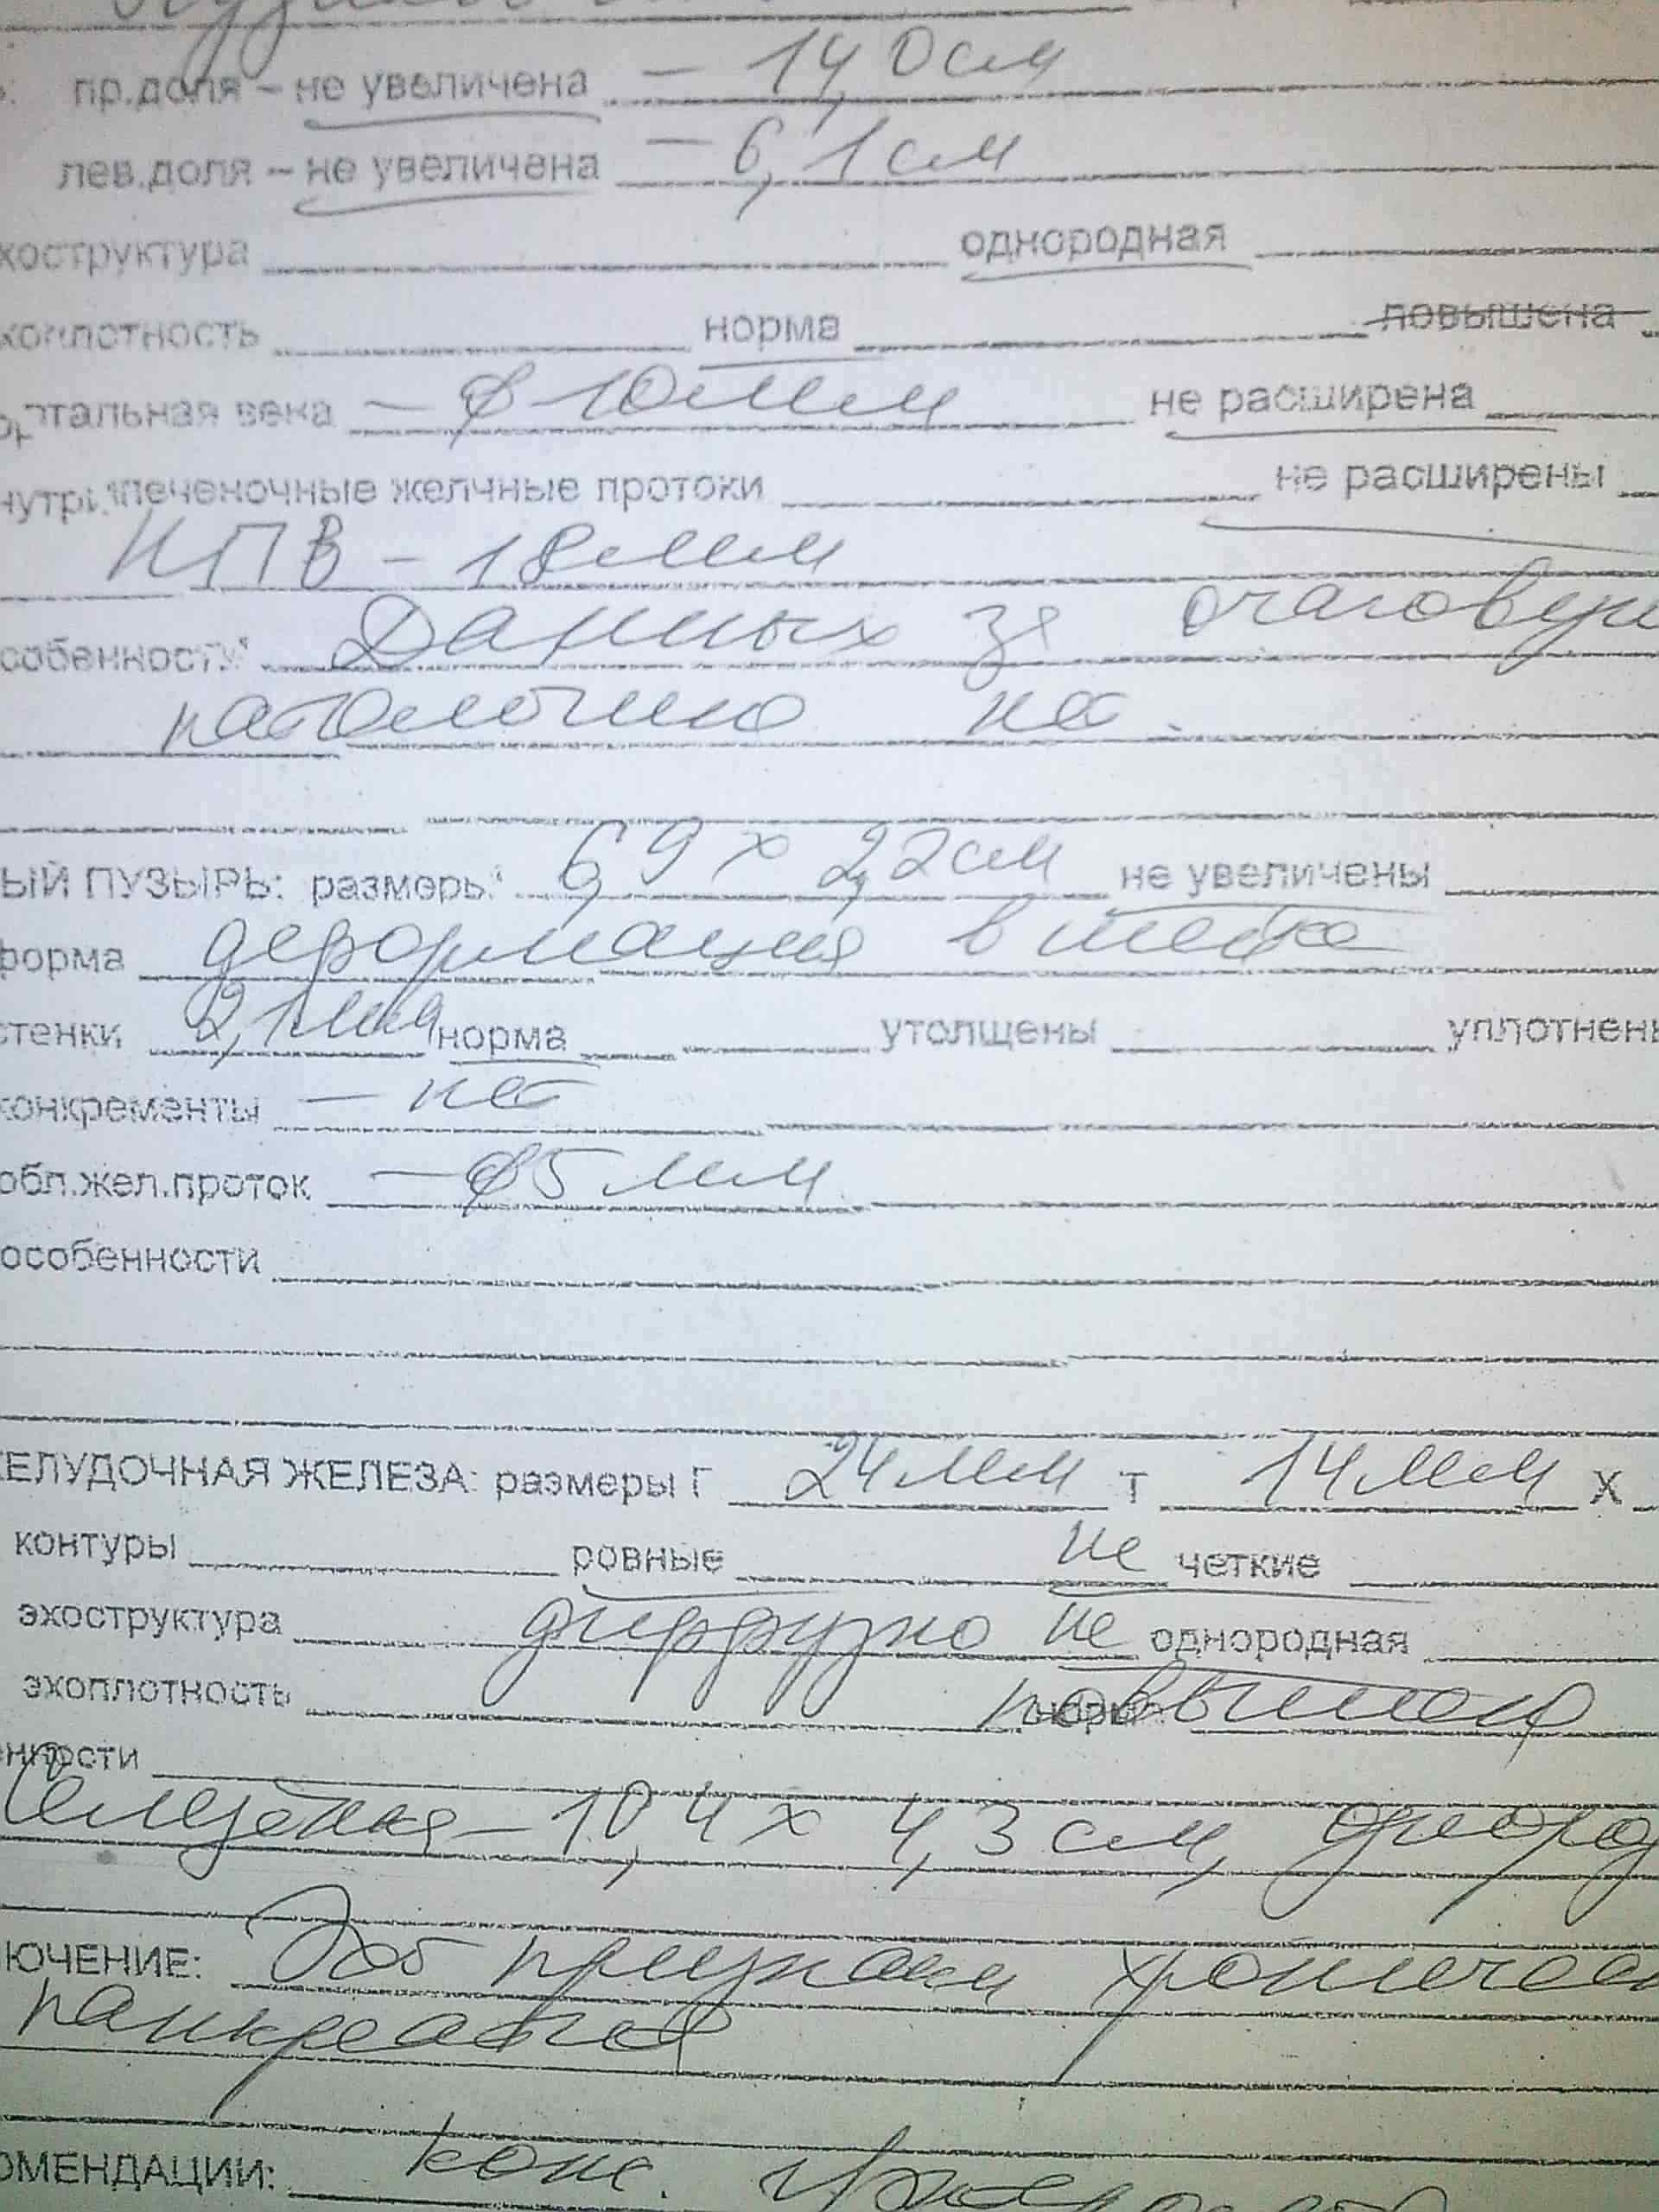 пр.доля – не увеличена – 14,0см
лев.доля – не увеличена – 6,1см
хоструктура однородная
хоплотность норма повышена
ртальная вена – ø 10мм не расширена
нутрипеченочные желчные протоки не расширены
НПВ – 18мм
собенности Данных за очаговую
патологию нет.
ЫЙ ПУЗЫРЬ: размеры 6,9 х 2,2см не увеличены
форма деформация в шейке
стенки 2,1мм норма утолщены уплотнены
конкременты – нет
общ.жел.проток – ø5 мм
особенности
ЕЛУДОЧНАЯ ЖЕЛЕЗА: размеры Г 24мм Т 14мм Х
контуры ровные не четкие
эхоструктура диффузно не однородная
эхоплотность повышена
нности
Селезёнка – 10,4 х 4,3 см, однород
ЮЧЕНИЕ: Эхо признаки хроническ
панкреатита
ОМЕНДАЦИИ: конс.